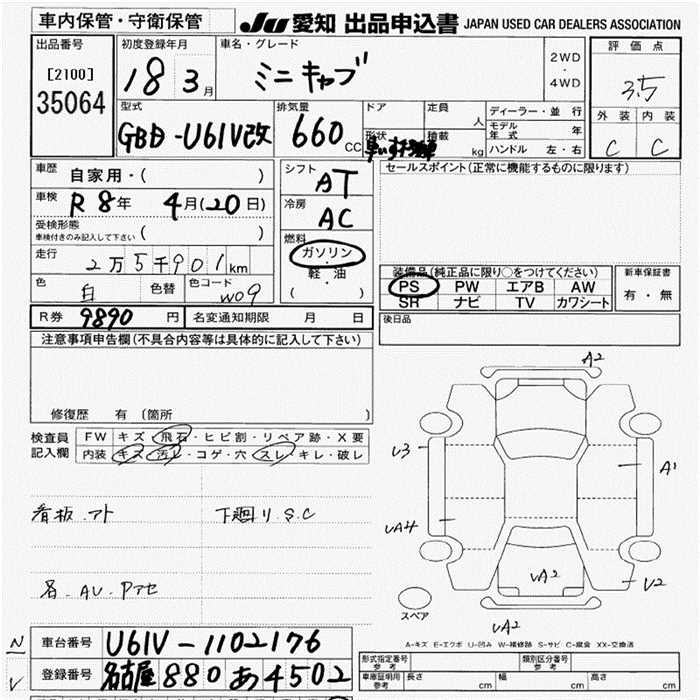 車内保管・守衛保管
JU 愛知 出品申込書 JAPAN USED CAR DEALERS ASSOCIATION
出品番号
[2100]
35064
初度登録年月
18 3月
車名・グレード
ミニキャブ
2WD
・
4WD
評価点
3.5
外装 内装
C C
型式
GBD-U61V改
排気量
660 CC
ドア
形状
定員
人
積載
kg
ディーラー・並行
モデル年式 年
ハンドル 左・右
車歴
自家用・( )
車検
R8年 4月(20日)
受検形態
車検付きのみ記入して下さい ( )
走行
2万5千901km
色
白
色替
色コード
W09
シフト
AT
冷房
AC
燃料
ガソリン
・
軽・油
( )
セールスポイント(正常に機能するものに限ります)
装備品(純正品に限り○をつけてください)
PS PW エアB AW
SR ナビ TV カワシート
新車保証書
有・無
後日品
R券 9890 円
名変通知期限 月 日
注意事項申告欄(不具合内容等は具体的に記入して下さい)
修復歴 有 〔箇所 〕
検査員
記入欄
FW キズ・飛石・ヒビ割・リペア跡・X要
内装 キズ・汚レ・コゲ・穴・スレ・キレ・破レ
看板.アト
下廻り.S.C
A2
U3
A1
UA4
UA2
U2
UA2
スペア
A-キズ E-エクボ U-凹み W-補修跡 S-サビ C-腐食 XX-交換済
車台番号
U61V-1102176
登録番号
名古屋 880 あ 4502
N
V
形式指定番号
参考
類別区分番号
参考
車庫証明用
参考
長さ cm
幅 cm
高さ cm